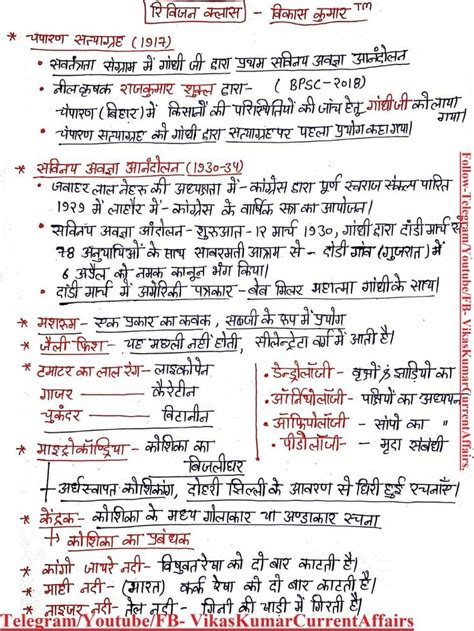 रिविजन क्लास - विकास कुमार TM
* चंपारण सत्याग्रह (1917)
• स्वतंत्रता संग्राम में गाँधी जी द्वारा प्रथम सविनय अवज्ञा आन्दोलन
• नील कृषक राजकुमार शुक्ल द्वारा- (BPSC-2018)
चंपारण (बिहार) में किसानों की परिस्थितियों की जांच हेतु गाँधी जी को लाया गया।
• चंपारण सत्याग्रह को गाँधी द्वारा सत्याग्रह पर पहला प्रयोग कहा गया।
* सविनय अवज्ञा आन्दोलन (1930-34)
• जवाहर लाल नेहरू की अध्यक्षता में - कांग्रेस द्वारा पूर्ण स्वराज संकल्प पारित
1929 में लाहौर में - कांग्रेस के वार्षिक सत्र का आयोजन।
• सविनय अवज्ञा आंदोलन - शुरुआत - 12 मार्च 1930, गाँधी द्वारा दांडी मार्च से
78 अनुयायिओं के साथ साबरमती आश्रम से - दांडी गांव (गुजरात) में
6 अप्रैल को नमक कानून भंग किया।
• दांडी मार्च में अमेरिकी पत्रकार - वेब मिलर महात्मा गाँधी के साथ।
* मशरूम - एक प्रकार का कवक, सब्जी के रूप में प्रयोग
* जैली फिश - यह मछली नहीं होती, सीलेन्ट्रेटा वर्ग में आती है।
* टमाटर का लाल रंग - लाइकोपेन
गाजर — कैरेटीन
चुकंदर — बिटानीन
• डेन्ड्रोलॉजी - वृक्षों व झाड़ियों का
• ऑर्निथोलॉजी - पक्षियों का अध्ययन
• ऑफियोलॉजी - सांपों का "
• पीडोलॉजी - मृदा संबंधी
* माइट्रोकॉण्ड्रिया - कोशिका का बिजलीघर
अर्धस्वायत्त कोशिकांग, दोहरी झिल्ली के आवरण से घिरी हुई संरचनाएँ।
* केंद्रक - कोशिका के मध्य गोलाकार या अण्डाकार रचना
कोशिका का प्रबंधक
* कांगो जायरे नदी - विषुवत रेखा को दो बार काटती है।
* माही नदी - (भारत) कर्क रेखा को दो बार काटती है।
* नाइजर नदी - तेल नदी - गिनी की खाड़ी में गिरती है।
Follow-Telegram/Youtube/FB- VikasKumarCurrentAffairs
Telegram/Youtube/FB- VikasKumarCurrentAffairs